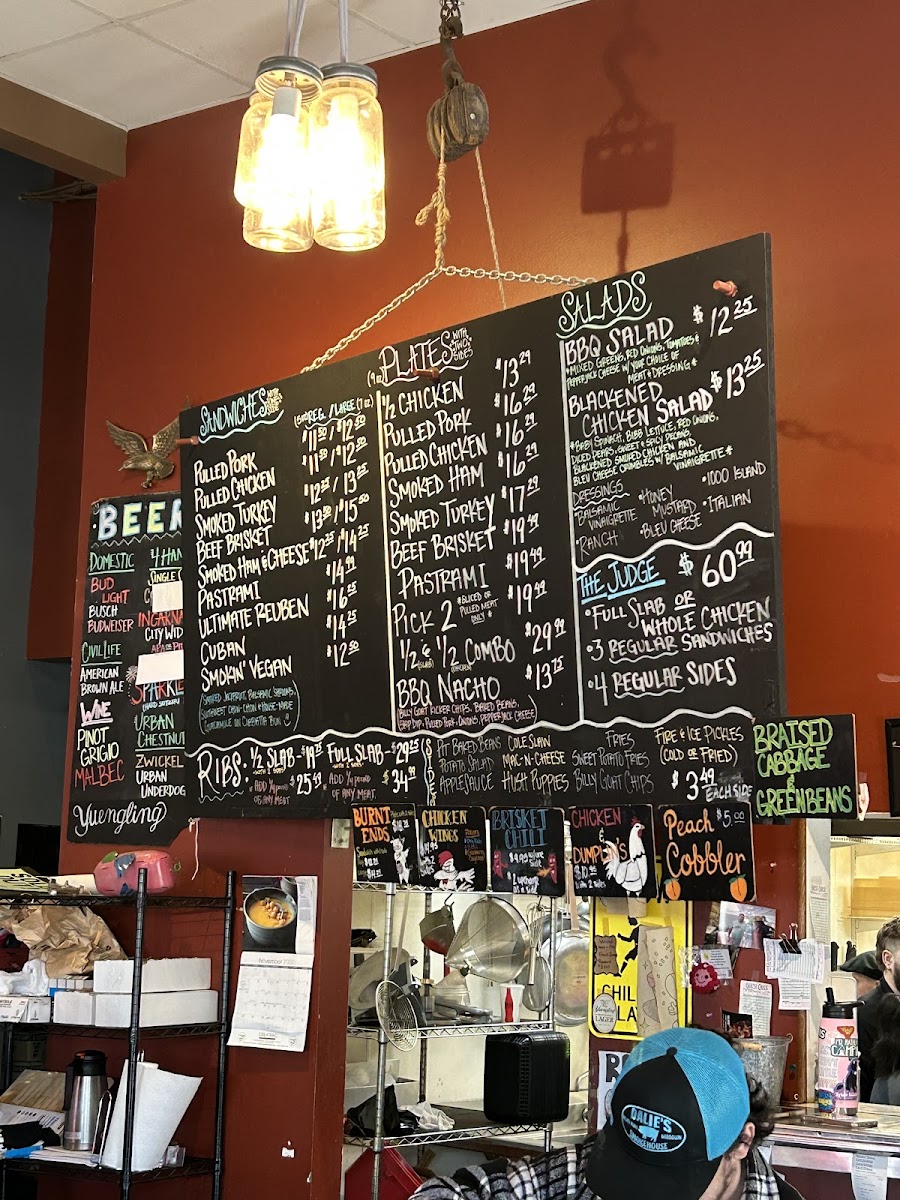 SANDWICHES
(5oz) REG. / LARGE (7oz)
PULLED PORK $11.50 / $12.50
PULLED CHICKEN $11.50 / $12.50
SMOKED TURKEY $12.25 / 13.25
BEEF BRISKET $13.50 / $15.50
SMOKED HAM & CHEESE $12.25 / $14.25
PASTRAMI $14.99
ULTIMATE REUBEN $16.25
CUBAN $14.25
SMOKIN' VEGAN $12.50
PLATES WITH TWO SIDES
(9oz)
1/2 CHICKEN $13.29
PULLED PORK $16.29
PULLED CHICKEN $16.29
SMOKED HAM $16.29
SMOKED TURKEY $17.29
BEEF BRISKET $19.99
PASTRAMI $19.99
PICK 2 *SLICED OR PULLED MEAT ONLY* $19.99
1/2 (SLAB) & 1/2 (CHICKEN) COMBO $29.99
BBQ NACHO $13.75
BILLY GOAT KICKER CHIPS, BAKED BEANS,
PULLED PORK, ONIONS, PEPPERJACK CHEESE
SALADS
BBQ SALAD $12.25
*MIXED GREENS, RED ONIONS, TOMATOES &
PEPPERJACK CHEESE W/ YOUR CHOICE OF
MEAT & DRESSING*
BLACKENED
CHICKEN SALAD $13.25
*BABY SPINACH, BIBB LETTUCE, RED ONIONS,
DICED PEARS, SWEET & SPICY PECANS,
BLACKENED SMOKED CHICKEN AND
BLEU CHEESE CRUMBLES W/ BALSAMIC
VINAIGRETTE*
DRESSINGS
•BALSAMIC VINAIGRETTE
•HONEY MUSTARD
•1000 ISLAND
•RANCH
•BLEU CHEESE
•ITALIAN
THE JUDGE $60.99
•FULL SLAB OR
WHOLE CHICKEN
•3 REGULAR SANDWICHES
•4 REGULAR SIDES
RIBS: 1/2 SLAB - $19.75 FULL SLAB - $29.25
*ADD 1/4 POUND OF ANY MEAT $25.49
ADD 1/4 POUND OF ANY MEAT $34.99
SIDES
PIT BAKED BEANS COLE SLAW FRIES FIRE & ICE PICKLES
POTATO SALAD MAC-N-CHEESE SWEET POTATO FRIES (COLD OR FRIED)
APPLESAUCE HUSH PUPPIES BILLY GOAT CHIPS $3.49 EACH SIDE
BRAISED
CABBAGE
&
GREEN BEANS
BEER
DOMESTIC
BUD
LIGHT
BUSCH
BUDWEISER
CIVIL LIFE
AMERICAN
BROWN ALE
WINE
PINOT
GRIGIO
MALBEC
Yuengling
4 HAN
SINGLE
INCARNA
CITY WID
SPARKLE
URBAN
CHESTNUT
ZWICKEL
URBAN
UNDERDOG
BURNT
ENDS
CHICKEN
WINGS
BRISKET
CHILI
CHICKEN
&
DUMPLIN'S
$10.99
Peach $5.00
Cobbler
CHIL
LA
LAGER
DALIE'S
SMOKEHOUSE